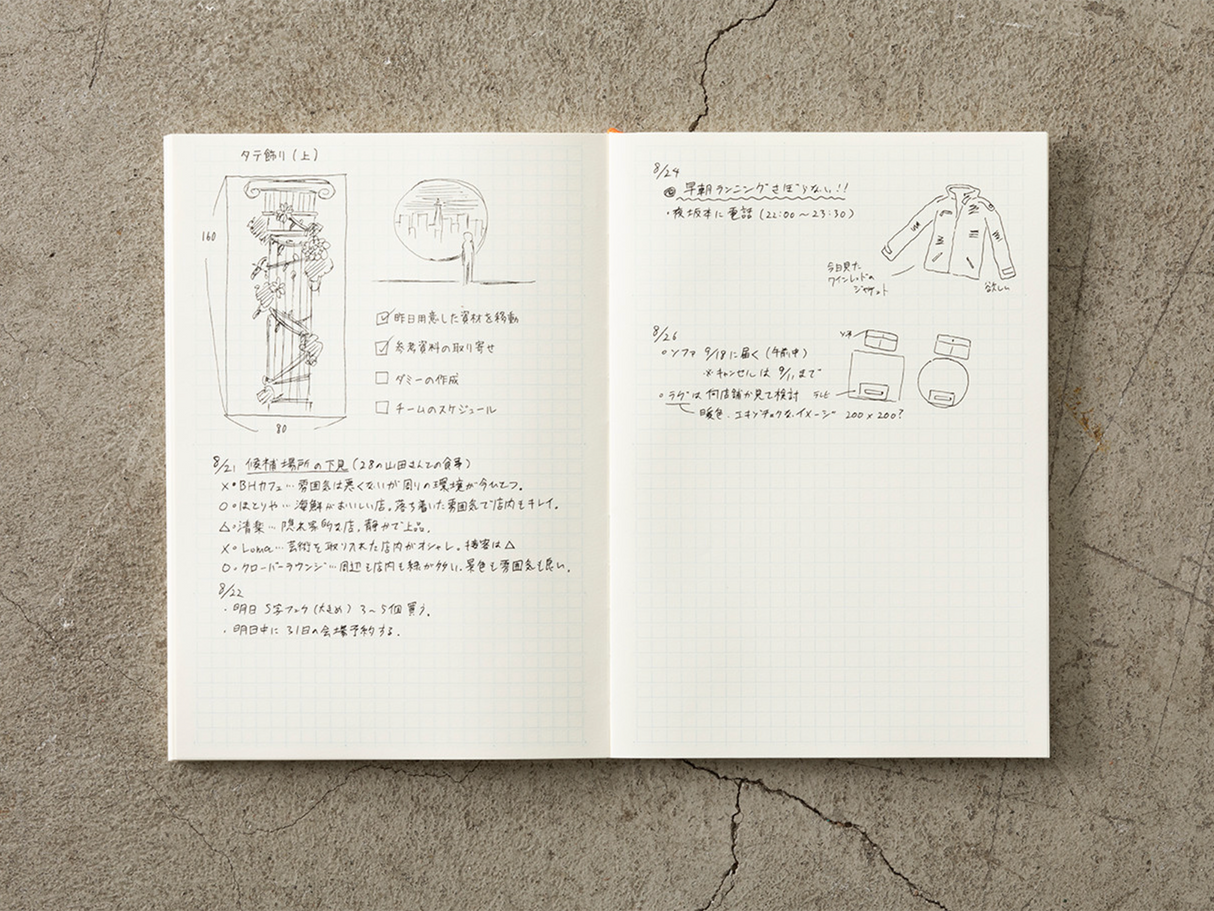 タテ飾り(上)
160
80
昨日用意した資材を移動
参考資料の取り寄せ
ダミーの作成
チームのスケジュール
8/21 候補場所の下見(28の山田さんとの食事)
×・BHカフェ… 雰囲気は悪くないが周りの環境が今ひとつ。
○・はとりや… 海鮮がおいしい店。落ち着いた雰囲気で店内もキレイ。
△・清楽… 隠れ家的な店。静かで上品。
×・Loma… 芸術を取り入れた店内がオシャレ。接客は△
○・クローバーラウンジ… 周辺も店内も緑が多い。景色も雰囲気も良い。
8/22
・明日 S字フック(大きめ) 3〜5個 買う。
・明日中に 31日の会場予約する。
8/24
早朝ランニングさぼらない!!
・夜坂本に電話(22:00〜23:30)
今日見た
ワインレッドの
ジャケット
欲しい
8/26
○ソファ 9/18に届く(午前中)
※キャンセルは 9/11まで
○ラグは何店舗か見て検討
暖色、エキゾチックなイメージ 200×200?
ソファ
テレビ